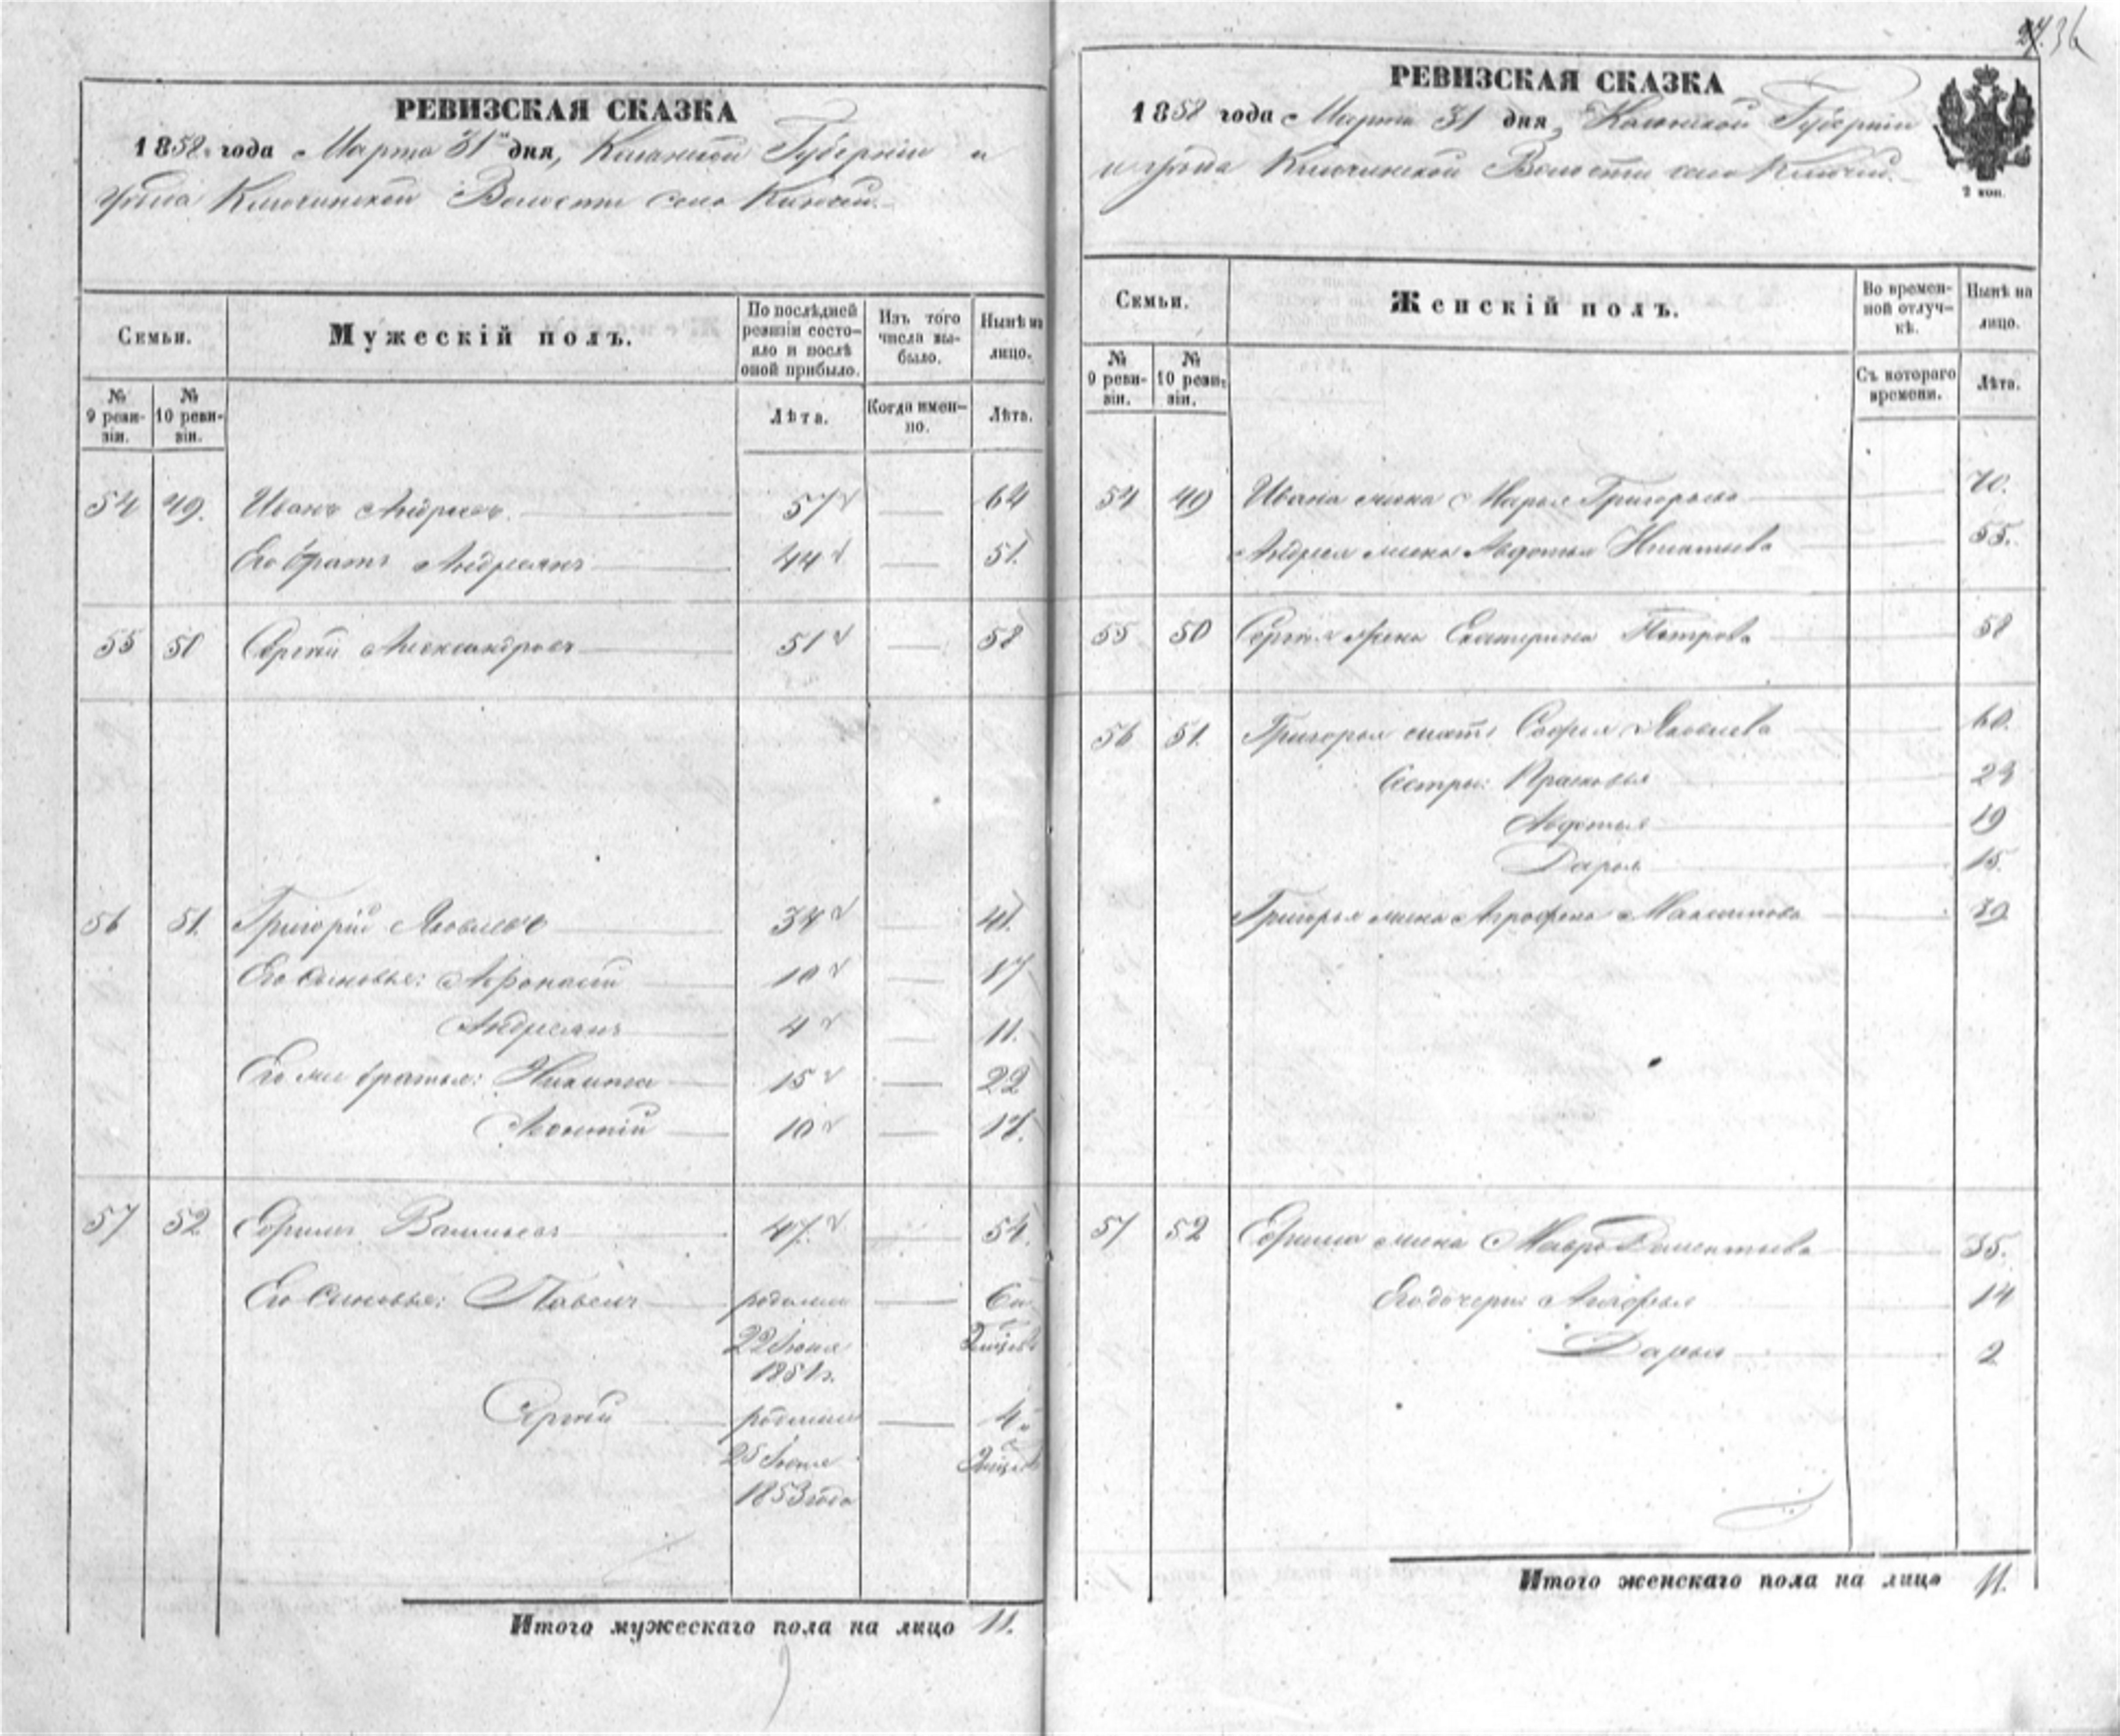 РЕВИЗСКАЯ СКАЗКА
1858 года Марта 31 дня, Казанской Губерніи и
уѣзда Ключинской Волости село Ключи.
Семьи.
Мужескій полъ.
По послѣдней ревизіи состояло и послѣ оной прибыло.
Изъ того числа выбыло.
Нынѣ на лицо.
№ 9 ревизіи.
№ 10 ревизіи.
Лѣта.
Когда именно.
Лѣта.
54 49. Иванъ Андреевъ 57 — 64
Его братъ Андреянъ 44 — 51.
55 50 Сергѣй Александровъ 51 — 58
56 51. Григорій Яковлевъ 34 — 41.
Его сыновья: Афонасій 10 — 17
Андреянъ 4 — 11.
Его же братья: Никита 15 — 22
Леонтій 10 — 17.
57 52 Ефимъ Васильевъ 47 — 54.
Его сыновья: Павелъ родился — 6 и
22 Іюня 9 мѣсяц
1851 г.
Сергѣй родился — 4 и
25 Іюня 9 мѣсяц
1853 года
Итого мужескаго пола на лицо 11.
36
РЕВИЗСКАЯ СКАЗКА
1858 года Марта 31 дня, Казанской Губерніи
и уѣзда Ключинской Волости село Ключи.
2 коп.
Семьи.
Женскій полъ.
Во временной отлучкѣ.
Нынѣ на лицо.
№ 9 ревизіи.
№ 10 ревизіи.
Съ котораго времени.
Лѣта.
54 49 Ивана жена Марья Григорьева 70.
Андрея жена Авдотья Игнатьева 55.
55 50 Сергѣя жена Екатерина Петрова 58
56 51. Григорья мать Софья Яковлева 60.
Сестры: Прасковья 24
Авдотья 19
Дарья 15.
Григорья жена Агрофена Максимова 39
57 52 Ефима жена Мавра Дементьева 35.
Его дочери: 14
Дарья 2
Итого женскаго пола на лицо 11.